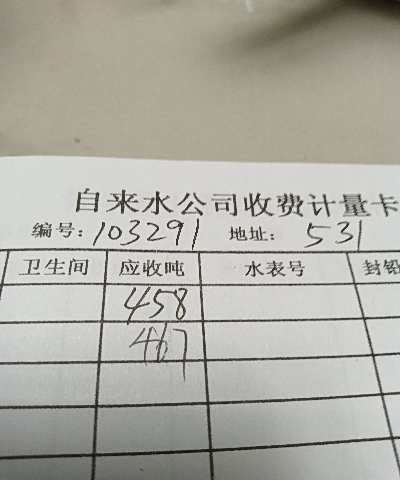 自来水公司收费计量卡
编号: 103291 地址: 531
卫生间 应收吨 水表号 封铅
458
467